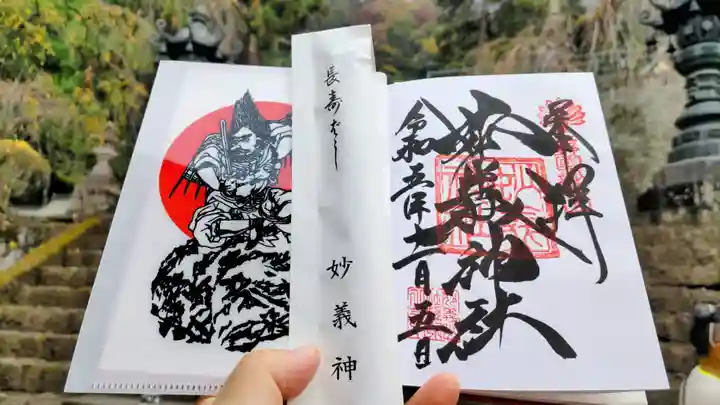 奉拝
妙義神社
令和五年十一月五日
長寿はし
妙義神